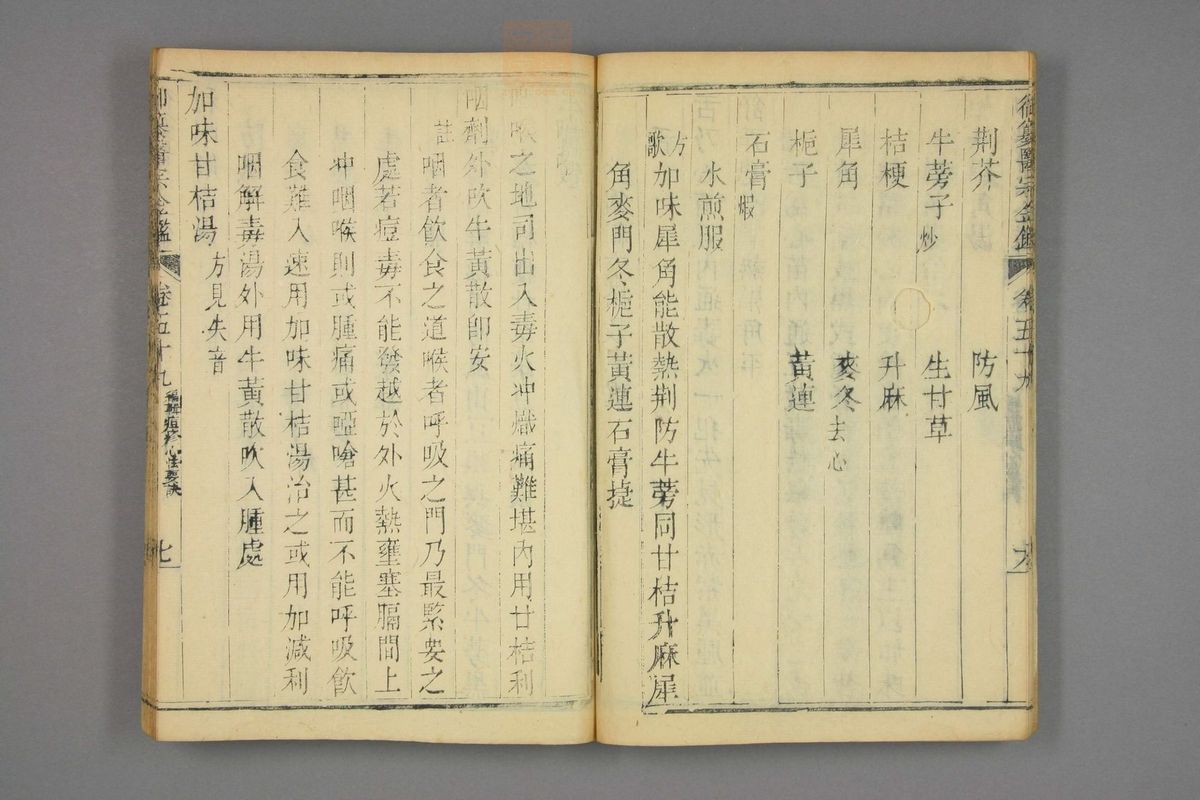 御纂醫宗金鑑 卷五十九 六
荆芥 防風
牛蒡子炒 生甘草
桔梗 升麻
犀角 麥冬去心
梔子 黃連
石膏煅
水煎服
方歌 加味犀角能散熱荆防牛蒡同甘桔升麻犀
角麥門冬梔子黃連石膏捷
喉之地司出入毒火冲熾痛難堪內用甘桔利
咽劑外吹牛黃散卽安
註咽者飲食之道喉者呼吸之門乃最緊要之
處若痘毒不能發越於外火熱壅塞膈間上
冲咽喉則或腫痛或啞嗆甚而不能呼吸飲
食難入速用加味甘桔湯治之或用加減利
咽解毒湯外用牛黃散吹入腫處
加味甘桔湯 方見失音
御纂醫宗金鑑 卷五十九 痘疹心法要訣 七